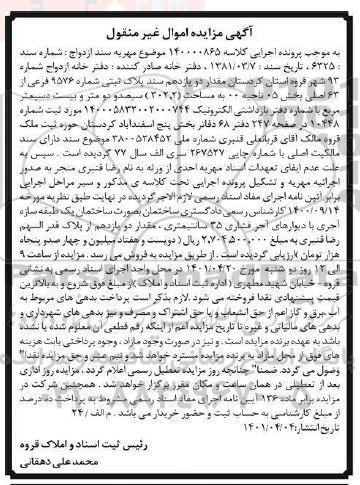 آگهی مزایده اموال غیر منقول
به موجب پرونده اجرایی کلاسه ۱۴۰۰۰۰۸۶۵ موضوع مهریه سند ازدواج : شماره سند
: ۶۳۲۵ ، تاریخ سند : ۱۳۸۱/۰۳/۰۷ ، دفتر خانه صادر کننده : دفتر خانه ازدواج شماره
۹۳ شهر قروه استان کردستان مقدار دو یازدهم سند پلاک ثبتی شماره ۹۵۷۶ فرعی از
۶۳ اصلی بخش ۰۵ ناحیه ۰۰ به مساحت (۳۰۲,۲) سیصد و دو متر و بیست دسیمتر
مربع با شماره دفتر بازداشتی الکترونیک مورد ثبت شماره
۱۰۴۴۸ در صفحه ۲۴۷ دفتر ۶۸ دفاتر بخش پنج اسفندآباد کردستان حوزه ثبت ملک
قروه مالک آقای قربانعلی قنبری شماره ملی ۳۸۰۰۵۳۸۴۵۲ موضوع سند دارای سند
مالکیت اصلی با شماره چاپی ۲۶۷۵۳۷ سری الف سال ۷۷ گردیده است . سپس به
علت عدم ایفای تعهدات اسناد مهریه احدی از ورثه به نام رضا قنبری منجر به صدور
اجرائیه مهریه و تشکیل پرونده اجرایی تحت کلاسه ی مذکور و سیر مراحل اجرایی
برابر آئین نامه اجرای مفاد اسناد رسمی لازم الاجر گردیده در نهایت طبق نظریه مورخه
۱۴۰۰/۰۹/۱۴ کارشناس رسمی دادگستری ساختمان بصورت ساختمان یک طبقه سازه
آجری با دیوارهای آجر فشاری ۳۵ سانتیمتری ، مقدار دو یازدهم از پلاک قدر السهم
رضا قنبری به مبلغ ۲,۷۰۴,۵۰۰,۰۰۰ ریال ( دویست و هفتاد میلیون و چهار صدو پنجاه
هزار تومان )ارزیابی گردیده است . از طریق مزایده به فروش می رسد . مزایده از ساعت ۹
الی ۱۲ روز دو شنبه مورخ ۱۴۰۱/۰۴/۲۰ در محل واحد اجرای اسناد رسمی به نشانی
قروه - خیابان شهید مطهری ( اداره ثبت اسناد و املاک )از مبلغ فوق شروع و به بالاترین
قیمت پیشنهادی نقدا فروخته می شود .لازم بذکر است پرداخت بدهی های مربوط به
آب ،برق و گاز اعم از حق انشعاب و یا حق اشتراک و مصرف و نیز بدهی های شهرداری و
بدهی های مالیاتی و غیره تا تاریخ مزایده اعم از اینکه رقم قطعی آن معلوم شده یا نشده
باشد به عهده برنده مزایده است . و نیز در صورت وجود مازاد ، وجوه پرداختی بابت هزینه
های فوق از محل مازاد به برنده مزایده مسترد خواهد شد و نیم عشر و حق مزایده نقدا"
وصول می گردد. ضمنا" چنانچه روز مزایده تعطیل رسمی اعلام گردد ، مزایده روز اداری
بعد از تعطیلی در همان ساعت و مکان مقرر برگزار خواهد شد . همچنین شرکت در
مزایده برابر ماده ۱۳۶ آیین نامه اجرای مفاد اسناد رسمی مشروط به پرداخت ده درصد
از مبلغ کارشناسی به حساب ثبت و حضور خریدار می باشد . م الف / ۲۴
تاریخ انتشار: ۱۴۰۱/۰۴/۰۴
رئیس ثبت اسناد و املاک قروه
محمد علی دهقانی